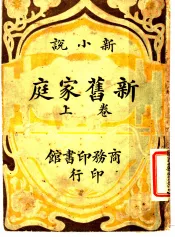 新小說
新舊家庭
卷上
商務印書館
印行